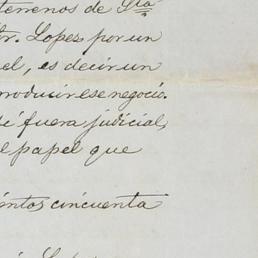 terrenos de Sta
Sr. Lopez por un
el, es decir un
producir ese negocio.
é fuera judicial,
el papel que
entos cincuenta